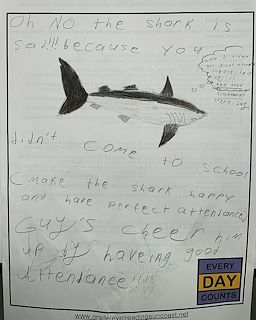 Oh NO the shark is
sad!!! because you
didn't come to school
(make the shark happy
and have perfect attentance)
Guy's cheer him
up by haveing good
Attentance!!!!
EVERY
DAY
COUNTS
www.gradelevelreadingsuncoast.net